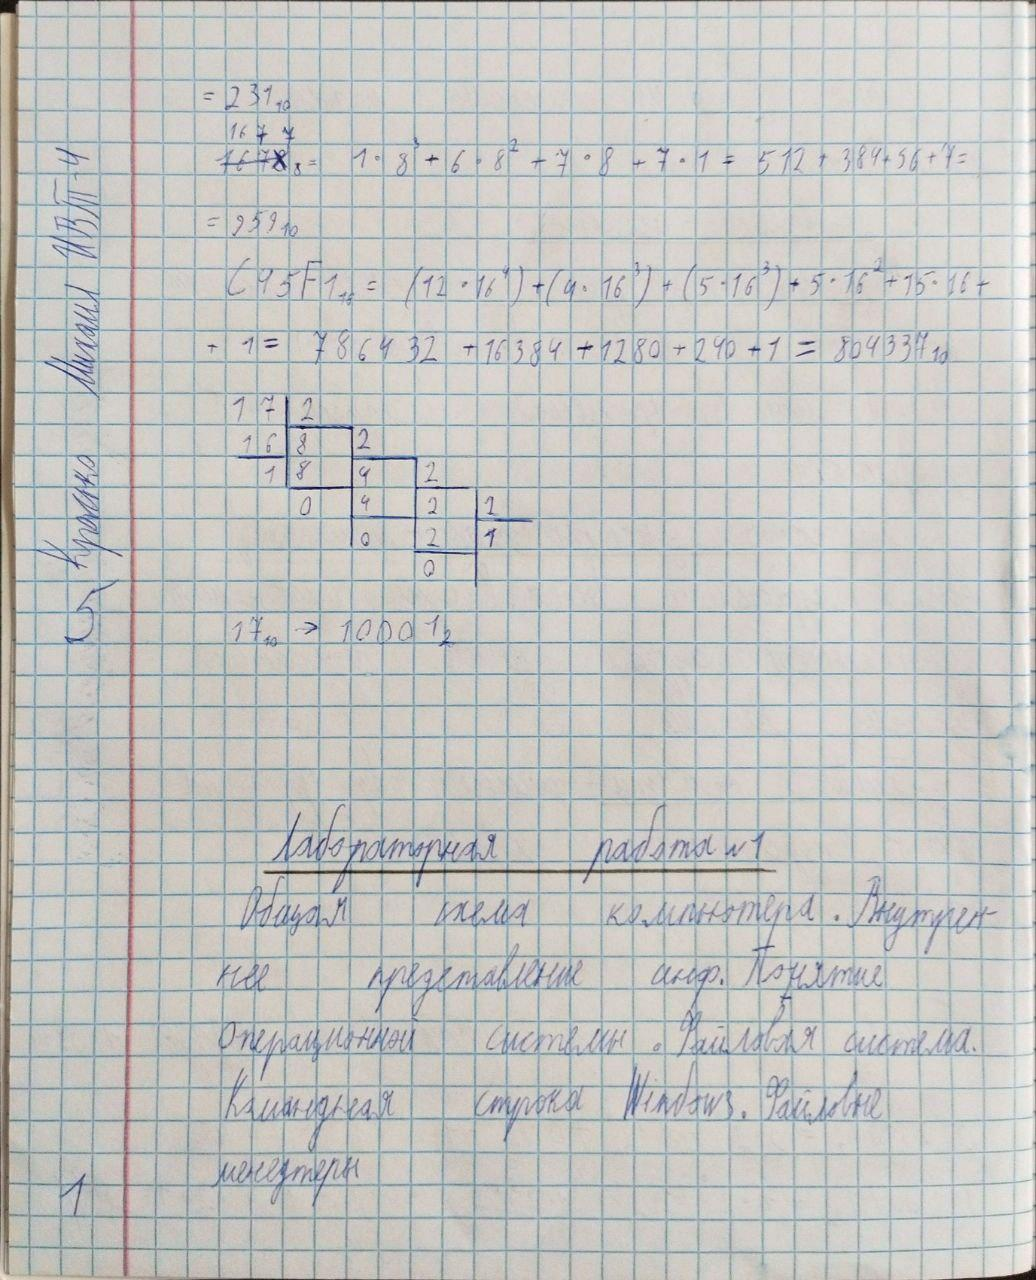 = 231₁₀
16 7 7
1678₈ = 1 · 8³ + 6 · 8² + 7 · 8 + 7 · 1 = 512 + 384 + 56 + 7 =
= 959₁₀
C45F1₁₆ = (12 · 16⁴) + (4 · 16³) + (5 · 16³) + 5 · 16² + 15 · 16 +
+ 1 = 786432 + 16384 + 1280 + 240 + 1 = 804337₁₀
17 2
16 8 2
1 8 4 2
0 4 2 2
0 2 1
0
17₁₀ → 10001₂
Лабораторная работа №1
Общая схема компьютера. Внутрен-
нее представление инф. Понятие
операционной системы. Файловая система.
Командная строка Windows. Файловые
менеджеры
1
Михаил ИВТ-4